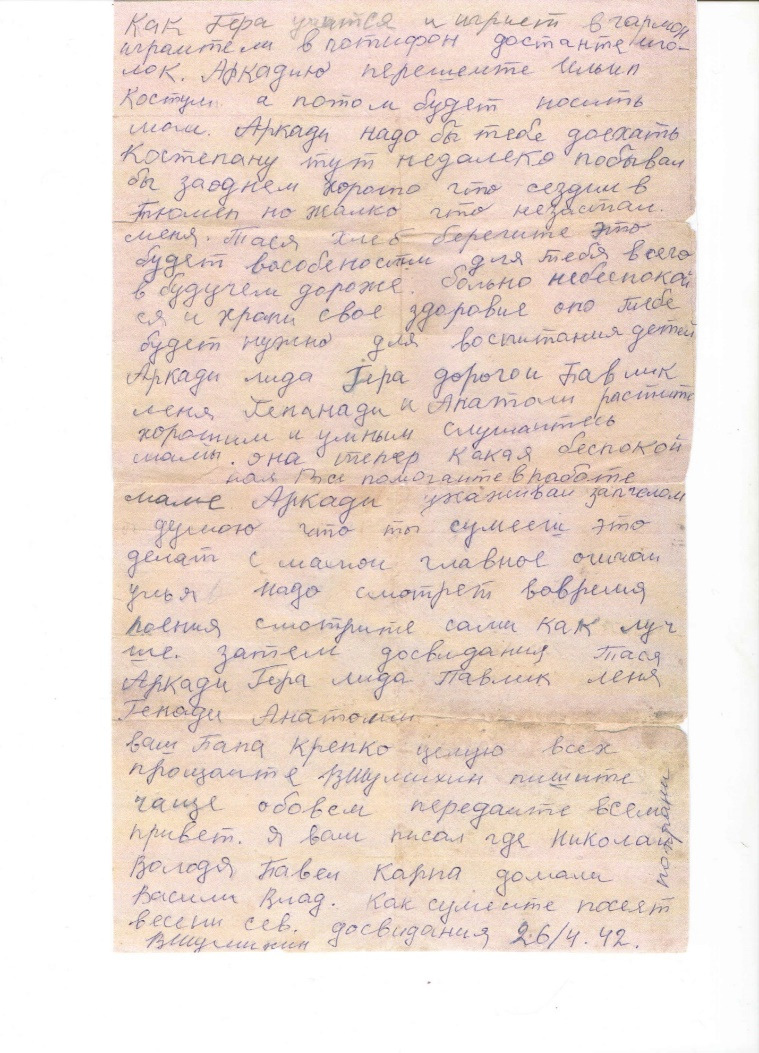 Как Гера учится и играет в гармон
играители в потифон достанте иго-
лок. Аркадию перешеите Ильин
Костум а потом будет носить
мом. Аркади надо бы тебе доехать
Костепану тут недалеко побывал
бы заоднем хорошо что сездил в
Тюмен но жалко что незастал.
меня. Тася хлеб берегите это
будет вособености для тебя всего
в будучем дороже. больно небеспокои
ся и храни свое здоровие оно тебе
будет нужно для воспитания детей
Аркади лида Гера дорогои Павлик
леня Генанади и Анатоли растите
хорошим и умным слушаитесь
мамы. она тепер какая беспокои
ная Все помогаите в работе
маме Аркади ухаживаи запчелом
думою что ты сумееш это
делат с мамои главное
улья надо смотрет вовремя
роения смотрите сами как луч
ше. затем досвидания Тася
Аркади Гера лида Павлик леня
Генади Анатоли
ваш Папа крепко целую всех
прощаите ВШумихин пишите
чаще обовсем передаите всем
привет. я вам писал где Николаи
Володя Павел Карпа домали
Васили Влад. Как сумеите посеят
весени сев. досвидания 26/4.42.
ВШумихин